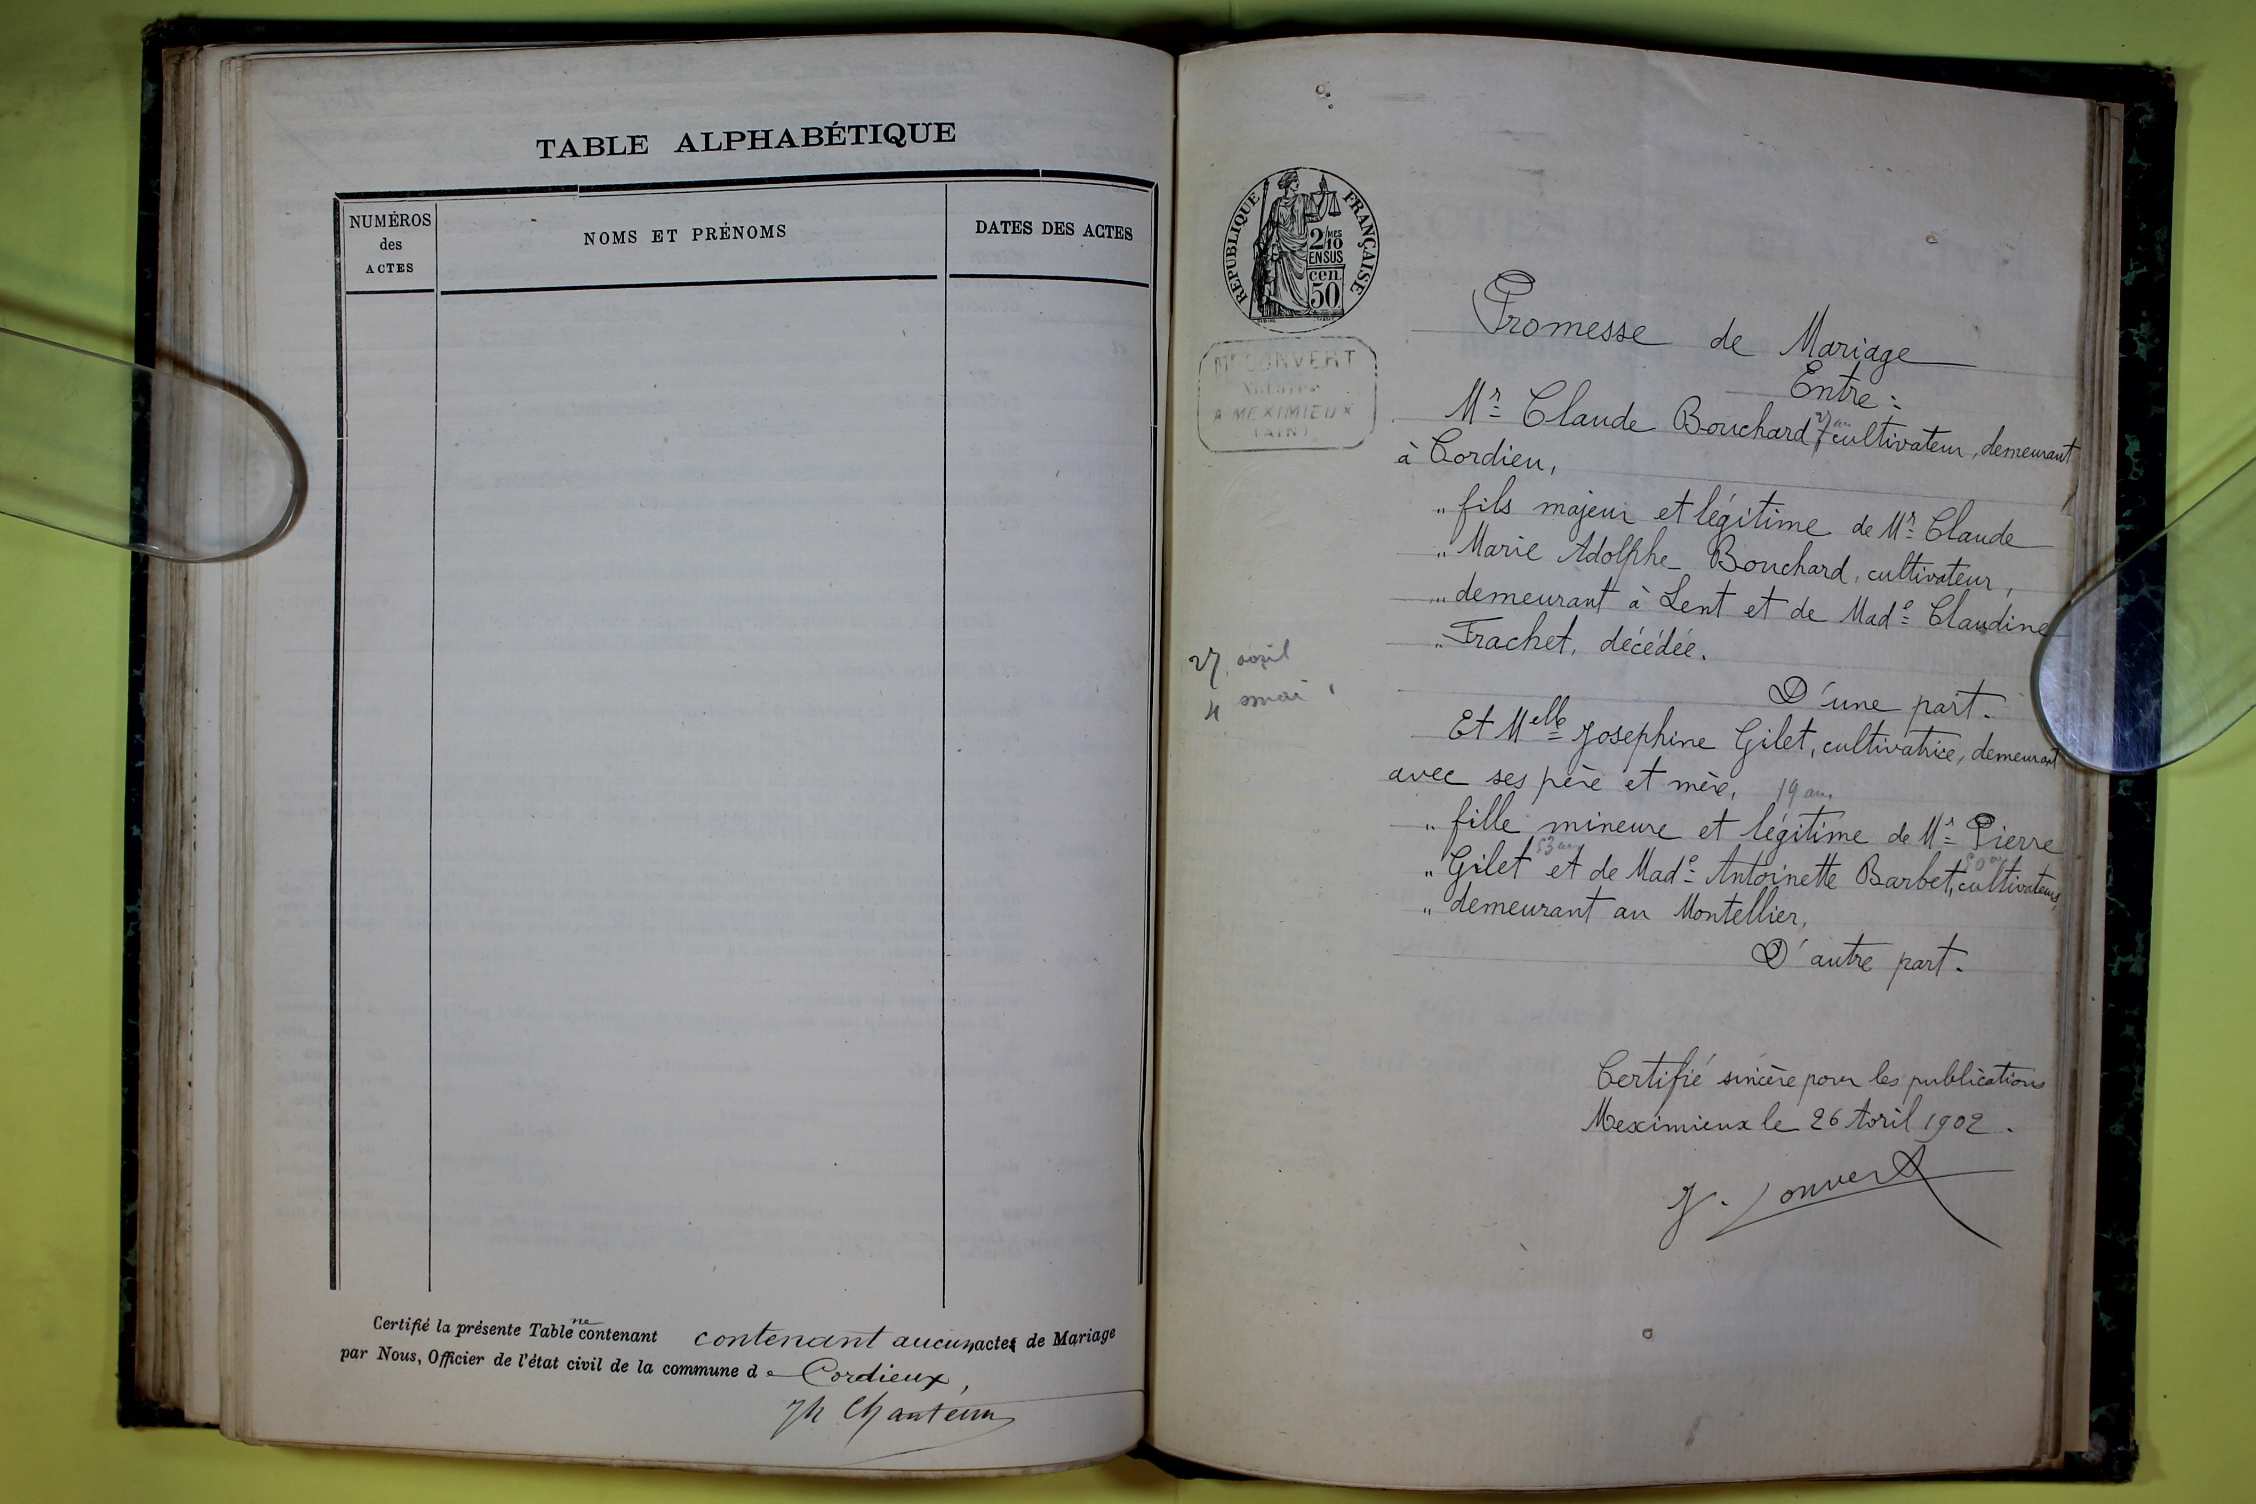 TABLE ALPHABÉTIQUE
NUMÉROS
des
ACTES
NOMS ET PRÉNOMS
DATES DES ACTES
Certifié la présente Table ne contenant contenant aucun actes de Mariage
par Nous, Officier de l'état civil de la commune de Cordieux,
RÉPUBLIQUE FRANÇAISE
2/10 MES
EN SUS
50 cen
Mᵉ CONVERT
Notaire
A MEXIMIEUX
(AIN)
27 avril
4 mai
Promesse de Mariage
Entre :
Mʳ Claude Bouchard 27 an cultivateur, demeurant
à Cordieu,
„ fils majeur et légitime de Mʳ Claude
„ Marie Adolphe Bouchard, cultivateur,
„ demeurant à Lent et de Madᵉ Claudine
„ Frachet, décédée.
D'une part.
Et Mᵉˡˡᵉ Josephine Gilet, cultivatrice, demeurant
avec ses père et mère, 19 an.
„ fille mineure et légitime de Mʳ Pierre
„ Gilet 53 an et de Madᵉ Antoinette Barbet, 50 an cultivateurs,
„ demeurant au Montellier,
D'autre part.
Certifié sincère pour les publications
Meximieux le 26 Avril 1902.
J. Convert